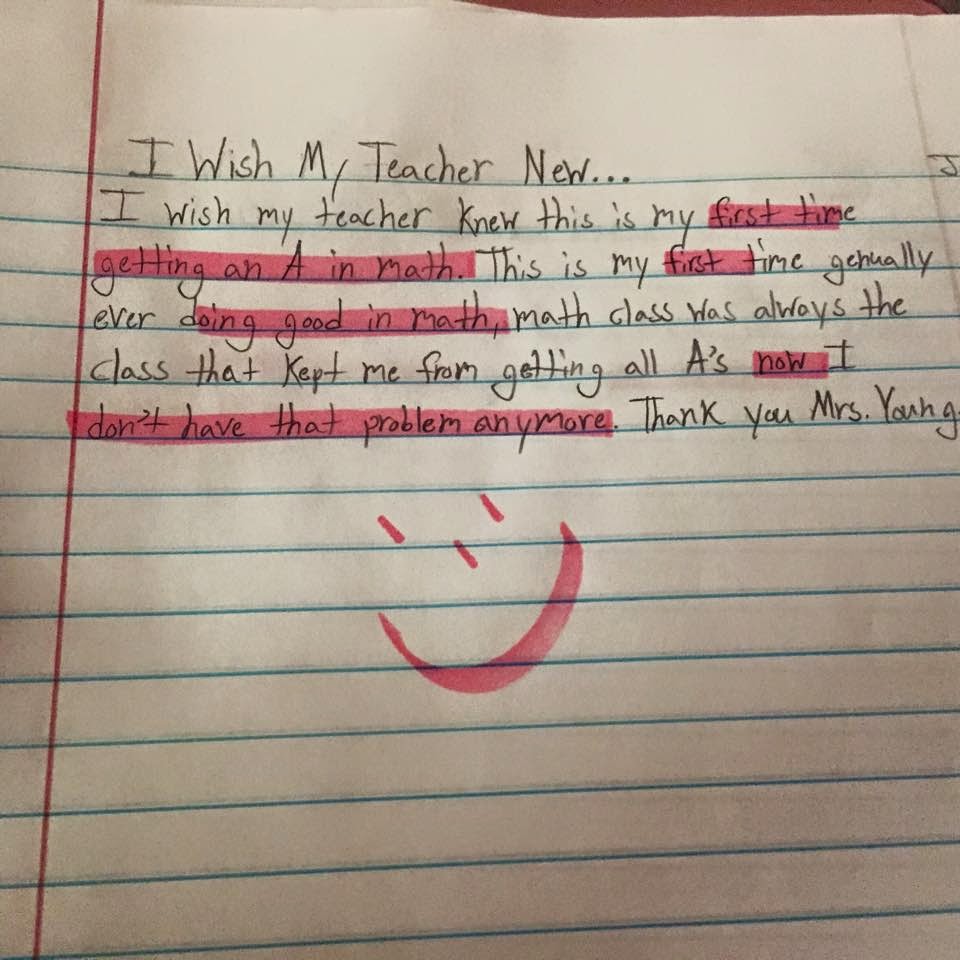 I Wish My Teacher New...
I wish my teacher knew this is my first time
getting an A in math. This is my first time genually
ever doing good in math, math class was always the
class that kept me from getting all A's now I
don't have that problem anymore. Thank you Mrs. Young